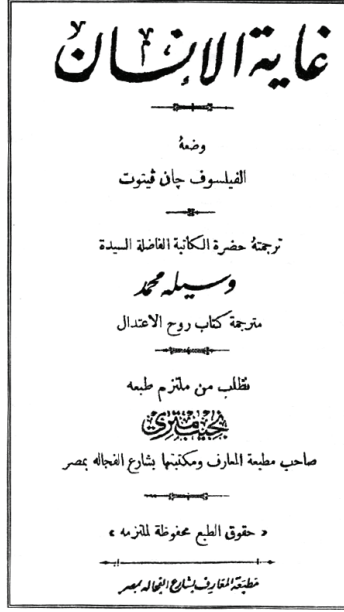 غاية الإنسان
وضعهُ
الفيلسوف چان ڤينوت
ترجمتهُ حضرة الكاتبة الفاضلة السيدة
وسيله محمد
مترجمة كتاب روح الاعتدال
تطلب من ملتزم طبعه
نجيب متري
صاحب مطبعة المعارف ومكتبتها بشارع الفجاله بمصر
« حقوق الطبع محفوظة لملتزمه »
مطبعة المعارف بشارع الفجاله بمصر